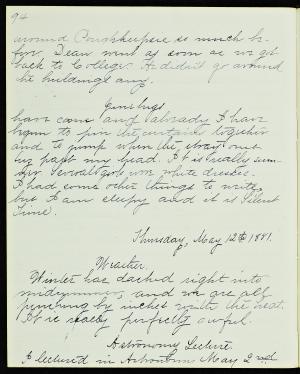 94
around Poughkeepsie so much be-
fore. Dean went as soon as we got
back to College. He didn't go around
the buildings any.
June bugs
have come and already I have
begun to pin the curtains together
and to jump when the straw ones
by past my head. It is really sum-
mer. Several girls wore white dresses.
I had some other things to write,
but I am sleepy and it is Silent
Time.
Thursday, May 12th 1881.
Weather.
Winter has dashed right into
midsummer, and we are all
perishing by inches with the heat.
It is really perfectly awful.
Astronomy Lecture.
I lectured in Astronomy May 2nd